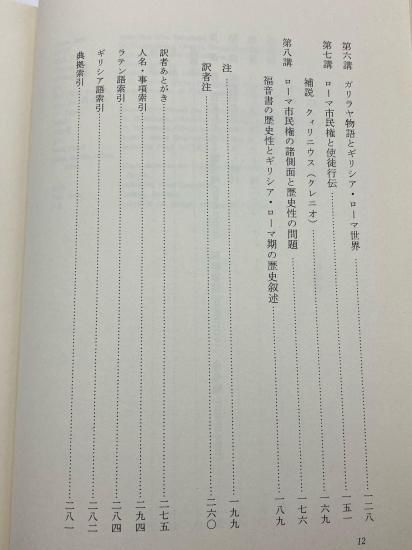 第六講 ガリラヤ物語とギリシア・ローマ世界……一二八
第七講 ローマ市民権と使徒行伝……一五一
補説 クィリニウス（クレニオ）……一六九
第八講 ローマ市民権の諸側面と歴史性の問題……一七六
福音書の歴史性とギリシア・ローマ期の歴史叙述……一八九
注……一九九
訳者注……二六〇
訳者あとがき……二七五
人名・事項索引……二九四
ラテン語索引……二八四
ギリシア語索引……二八二
典拠索引……二八一
12